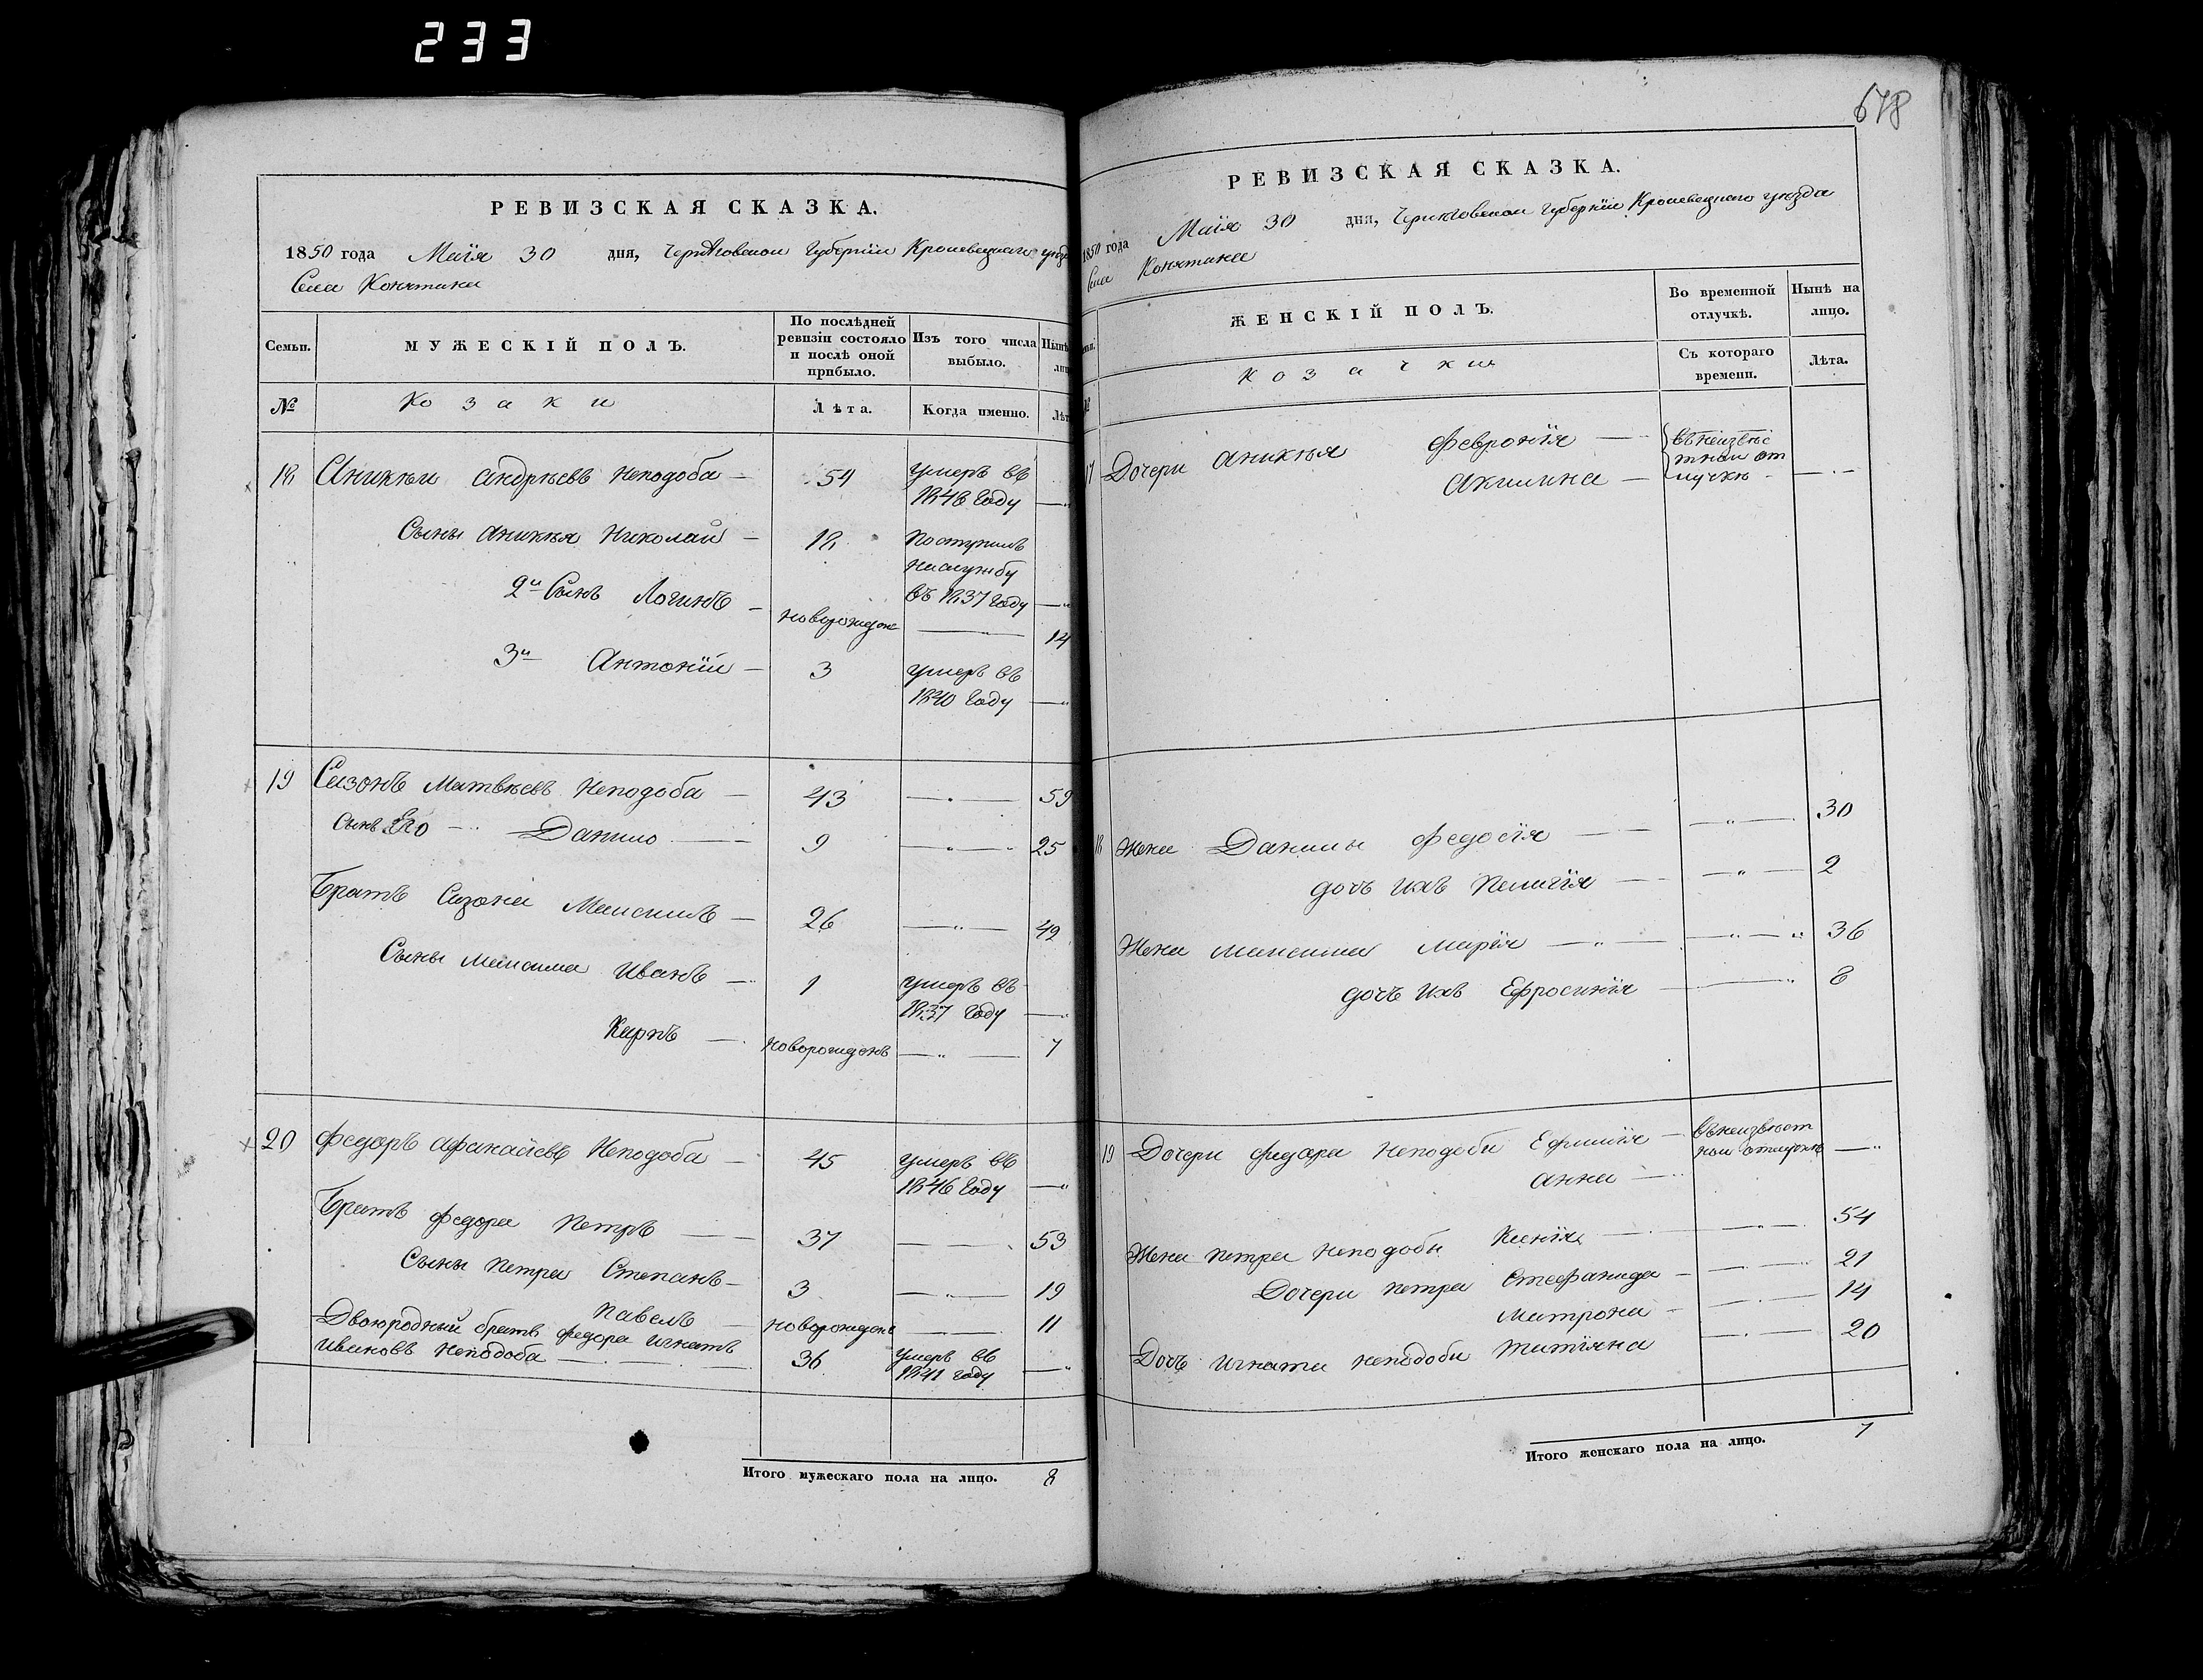 233
РЕВИЗСКАЯ СКАЗКА.
1850 года Маія 30 дня, Черниговской Губерніи Кролевецкаго уѣзда
Села Конятина
Семьи. МУЖЕСКІЙ ПОЛЪ. По послѣдней ревизіи состояло и послѣ оной прибыло. Изъ того числа выбыло.
№ Козаки Лѣта. Когда именно.
18 Аникѣй Андрѣевъ Неподоба — 54 умеръ въ
1848 году
Сыны Аникѣя Николай — 18 Поступилъ
на службу
въ 1837 году
2й Сынъ Логинъ — новорожден 14
3й Антоній — 3 умеръ въ
1840 году
19 Сизонъ Матвѣевъ Неподоба — 43 59
Сынъ Его — Данило 9 25
Братъ Сизона Максимъ — 26 42
Сыны Максима Иванъ — 1 умеръ въ
1837 году
Карпъ — новорожденъ 7
20 Федоръ Афанасіевъ Неподоба — 45 умеръ въ
1846 году
Братъ Федора Петръ 37 53
Сыны Петра Степанъ — 3 19
Павелъ — новорожденъ 11
Двоюродный братъ Федора Игнатъ
Ивановъ Неподоба 36 умеръ въ
1841 году
Итого мужескаго пола на лицо. 8
678
РЕВИЗСКАЯ СКАЗКА.
1850 года Маія 30 дня, Черниговской Губерніи Кролевецкаго уѣзда
Села Конятина
ЖЕНСКІЙ ПОЛЪ. Во временной отлучкѣ. Нынѣ на лицо.
Козачки Съ котораго времени. Лѣта.
17 Дочери Аникѣя Февронія — въ неизвѣс
Акилина — тной от
лучкѣ
18 Жена Данилы Федосія 30
дочь ихъ Пелагія 2
Жена Максима Марія 36
дочь ихъ Ефросинія 8
19 Дочери Федора Неподобы Ефимія — въ неизвѣст
ной отлучкѣ
Анна
Жена Петра Неподобы Ксенія 54
Дочери Петра Стефанида — 21
Матрона — 14
Дочь Игната Неподобы Татіяна 20
Итого женскаго пола на лицо. 7